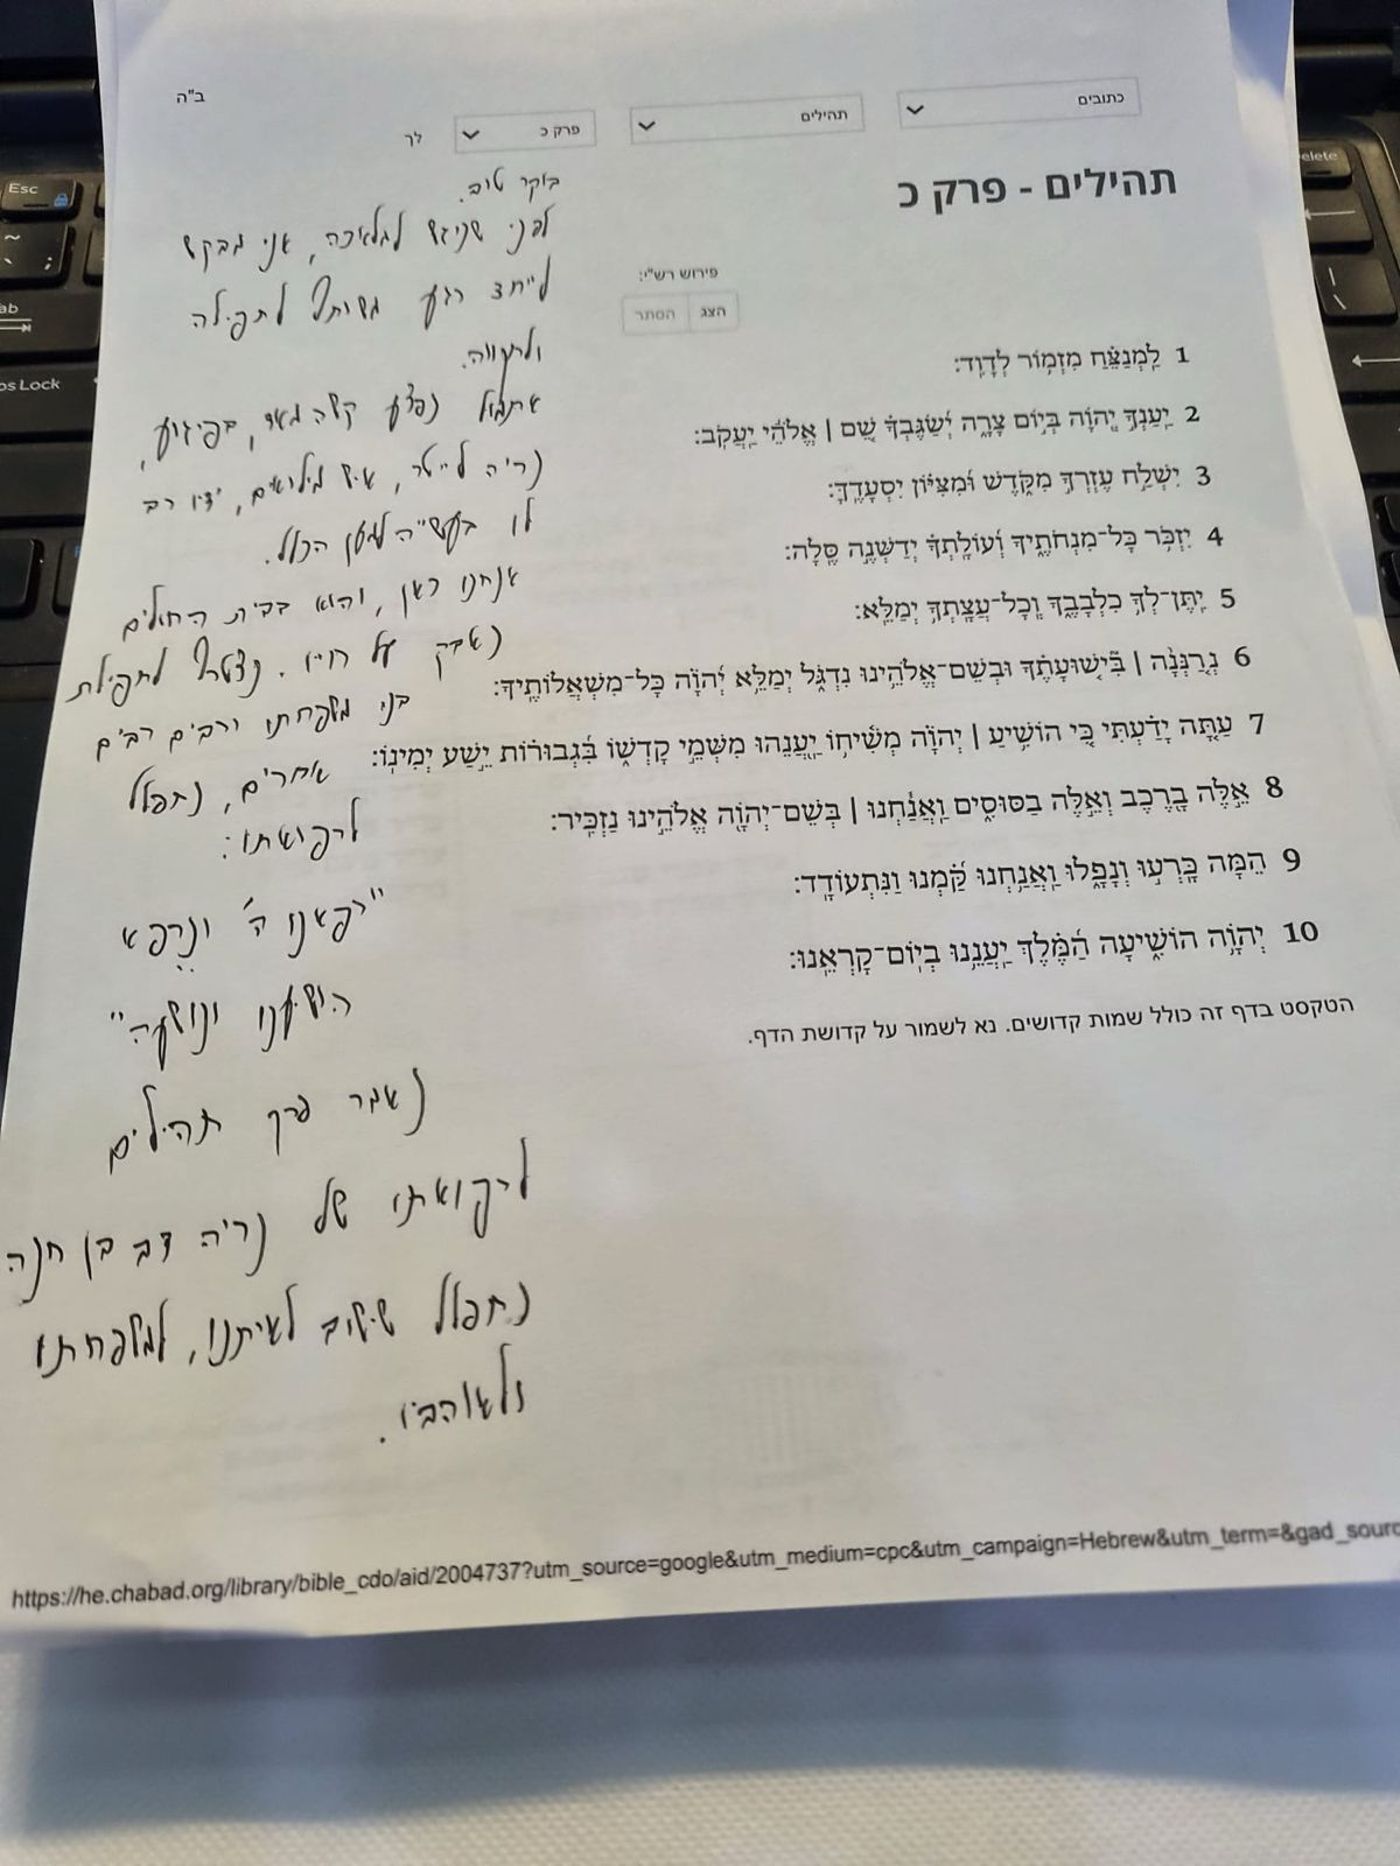 ב"ה
כתובים
תהילים
פרק כ
לך
תהילים - פרק כ
פירוש רש"י:
הצג
הסתר
1 לַמְנַצֵּחַ מִזְמוֹר לְדָוִד:
2 יַעַנְךָ יְהוָֹה בְּיוֹם צָרָה יְשַׂגֶּבְךָ שֵׁם | אֱלֹהֵי יַעֲקֹב:
3 יִשְׁלַח עֶזְרְךָ מִקֹּדֶשׁ וּמִצִּיּוֹן יִסְעָדֶךָּ:
4 יִזְכֹּר כָּל־מִנְחֹתֶיךָ וְעוֹלָתְךָ יְדַשְּׁנֶה סֶּלָה:
5 יִתֶּן־לְךָ כִלְבָבֶךָ וְכָל־עֲצָתְךָ יְמַלֵּא:
6 נְרַנְּנָה | בִּישׁוּעָתֶךָ וּבְשֵׁם־אֱלֹהֵינוּ נִדְגֹּל יְמַלֵּא יְהוָֹה כָּל־מִשְׁאֲלוֹתֶיךָ:
7 עַתָּה יָדַעְתִּי כִּי הוֹשִׁיעַ | יְהוָֹה מְשִׁיחוֹ יַעֲנֵהוּ מִשְּׁמֵי קָדְשׁוֹ בִּגְבוּרוֹת יֵשַׁע יְמִינוֹ:
8 אֵלֶּה בָרֶכֶב וְאֵלֶּה בַסּוּסִים וַאֲנַחְנוּ | בְּשֵׁם־יְהוָֹה אֱלֹהֵינוּ נַזְכִּיר:
9 הֵמָּה כָּרְעוּ וְנָפָלוּ וַאֲנַחְנוּ קַּמְנוּ וַנִּתְעוֹדָד:
10 יְהוָֹה הוֹשִׁיעָה הַמֶּלֶךְ יַעֲנֵנוּ בְיוֹם־קָרְאֵנוּ:
הטקסט בדף זה כולל שמות קדושים. נא לשמור על קדושת הדף.
בוקר טוב.
לפני שניגש למלאכה, אני מבקש
לייחד רגע משותף לתפילה
ולתקווה.
אתמול נפצע קשה מאד, בפיגוע,
נריה לייטר, איש מילואים, ידיו רב
לו בעש"ה למען הכלל.
אנחנו כאן, והוא בבית החולים
נאבק על חייו. נצטרף לתפילת
בני משפחתו ורבים רבים
אחרים, נתפלל
לרפואתו:
"רפאנו ה' ונרפא
הושיענו ונושעה"
נאמר פרק תהילים
לרפואתו של נריה דב בן חנה
נתפלל שישוב לאיתנו, למשפחתו
ולאוהביו.
https://he.chabad.org/library/bible_cdo/aid/2004737?utm_source=google&utm_medium=cpc&utm_campaign=Hebrew&utm_term=&gad_sourc
Esc
ab
os Lock
elete